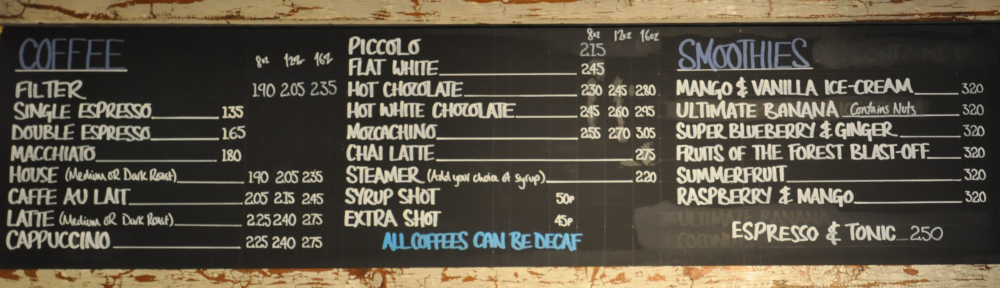 COFFEE
8oz 12oz 16oz
FILTER 190 2.05 2.35
SINGLE ESPRESSO 1.35
DOUBLE ESPRESSO 1.65
MACCHIATO 1.80
HOUSE (Medium OR Dark Roast) 190 2.05 2.35
CAFFE AU LAIT 2.05 2.35 2.45
LATTE (Medium OR Dark Roast) 2.25 2.40 2.75
CAPPUCCINO 2.25 2.40 2.75
8oz 12oz 16oz
PICCOLO 2.15
FLAT WHITE 2.45
HOT CHOCOLATE 2.30 2.45 2.80
HOT WHITE CHOCOLATE 2.45 2.60 2.95
MOCACHINO 2.55 2.70 3.05
CHAI LATTE 2.75
STEAMER (Add your choice of syrup) 2.20
SYRUP SHOT 50P
EXTRA SHOT 45P
ALL COFFEES CAN BE DECAF
SMOOTHIES
MANGO & VANILLA ICE-CREAM 3.20
ULTIMATE BANANA Contains Nuts 3.20
SUPER BLUEBERRY & GINGER 3.20
FRUITS OF THE FOREST BLAST-OFF 3.20
SUMMERFRUIT 3.20
RASPBERRY & MANGO 3.20
ESPRESSO & TONIC 2.50